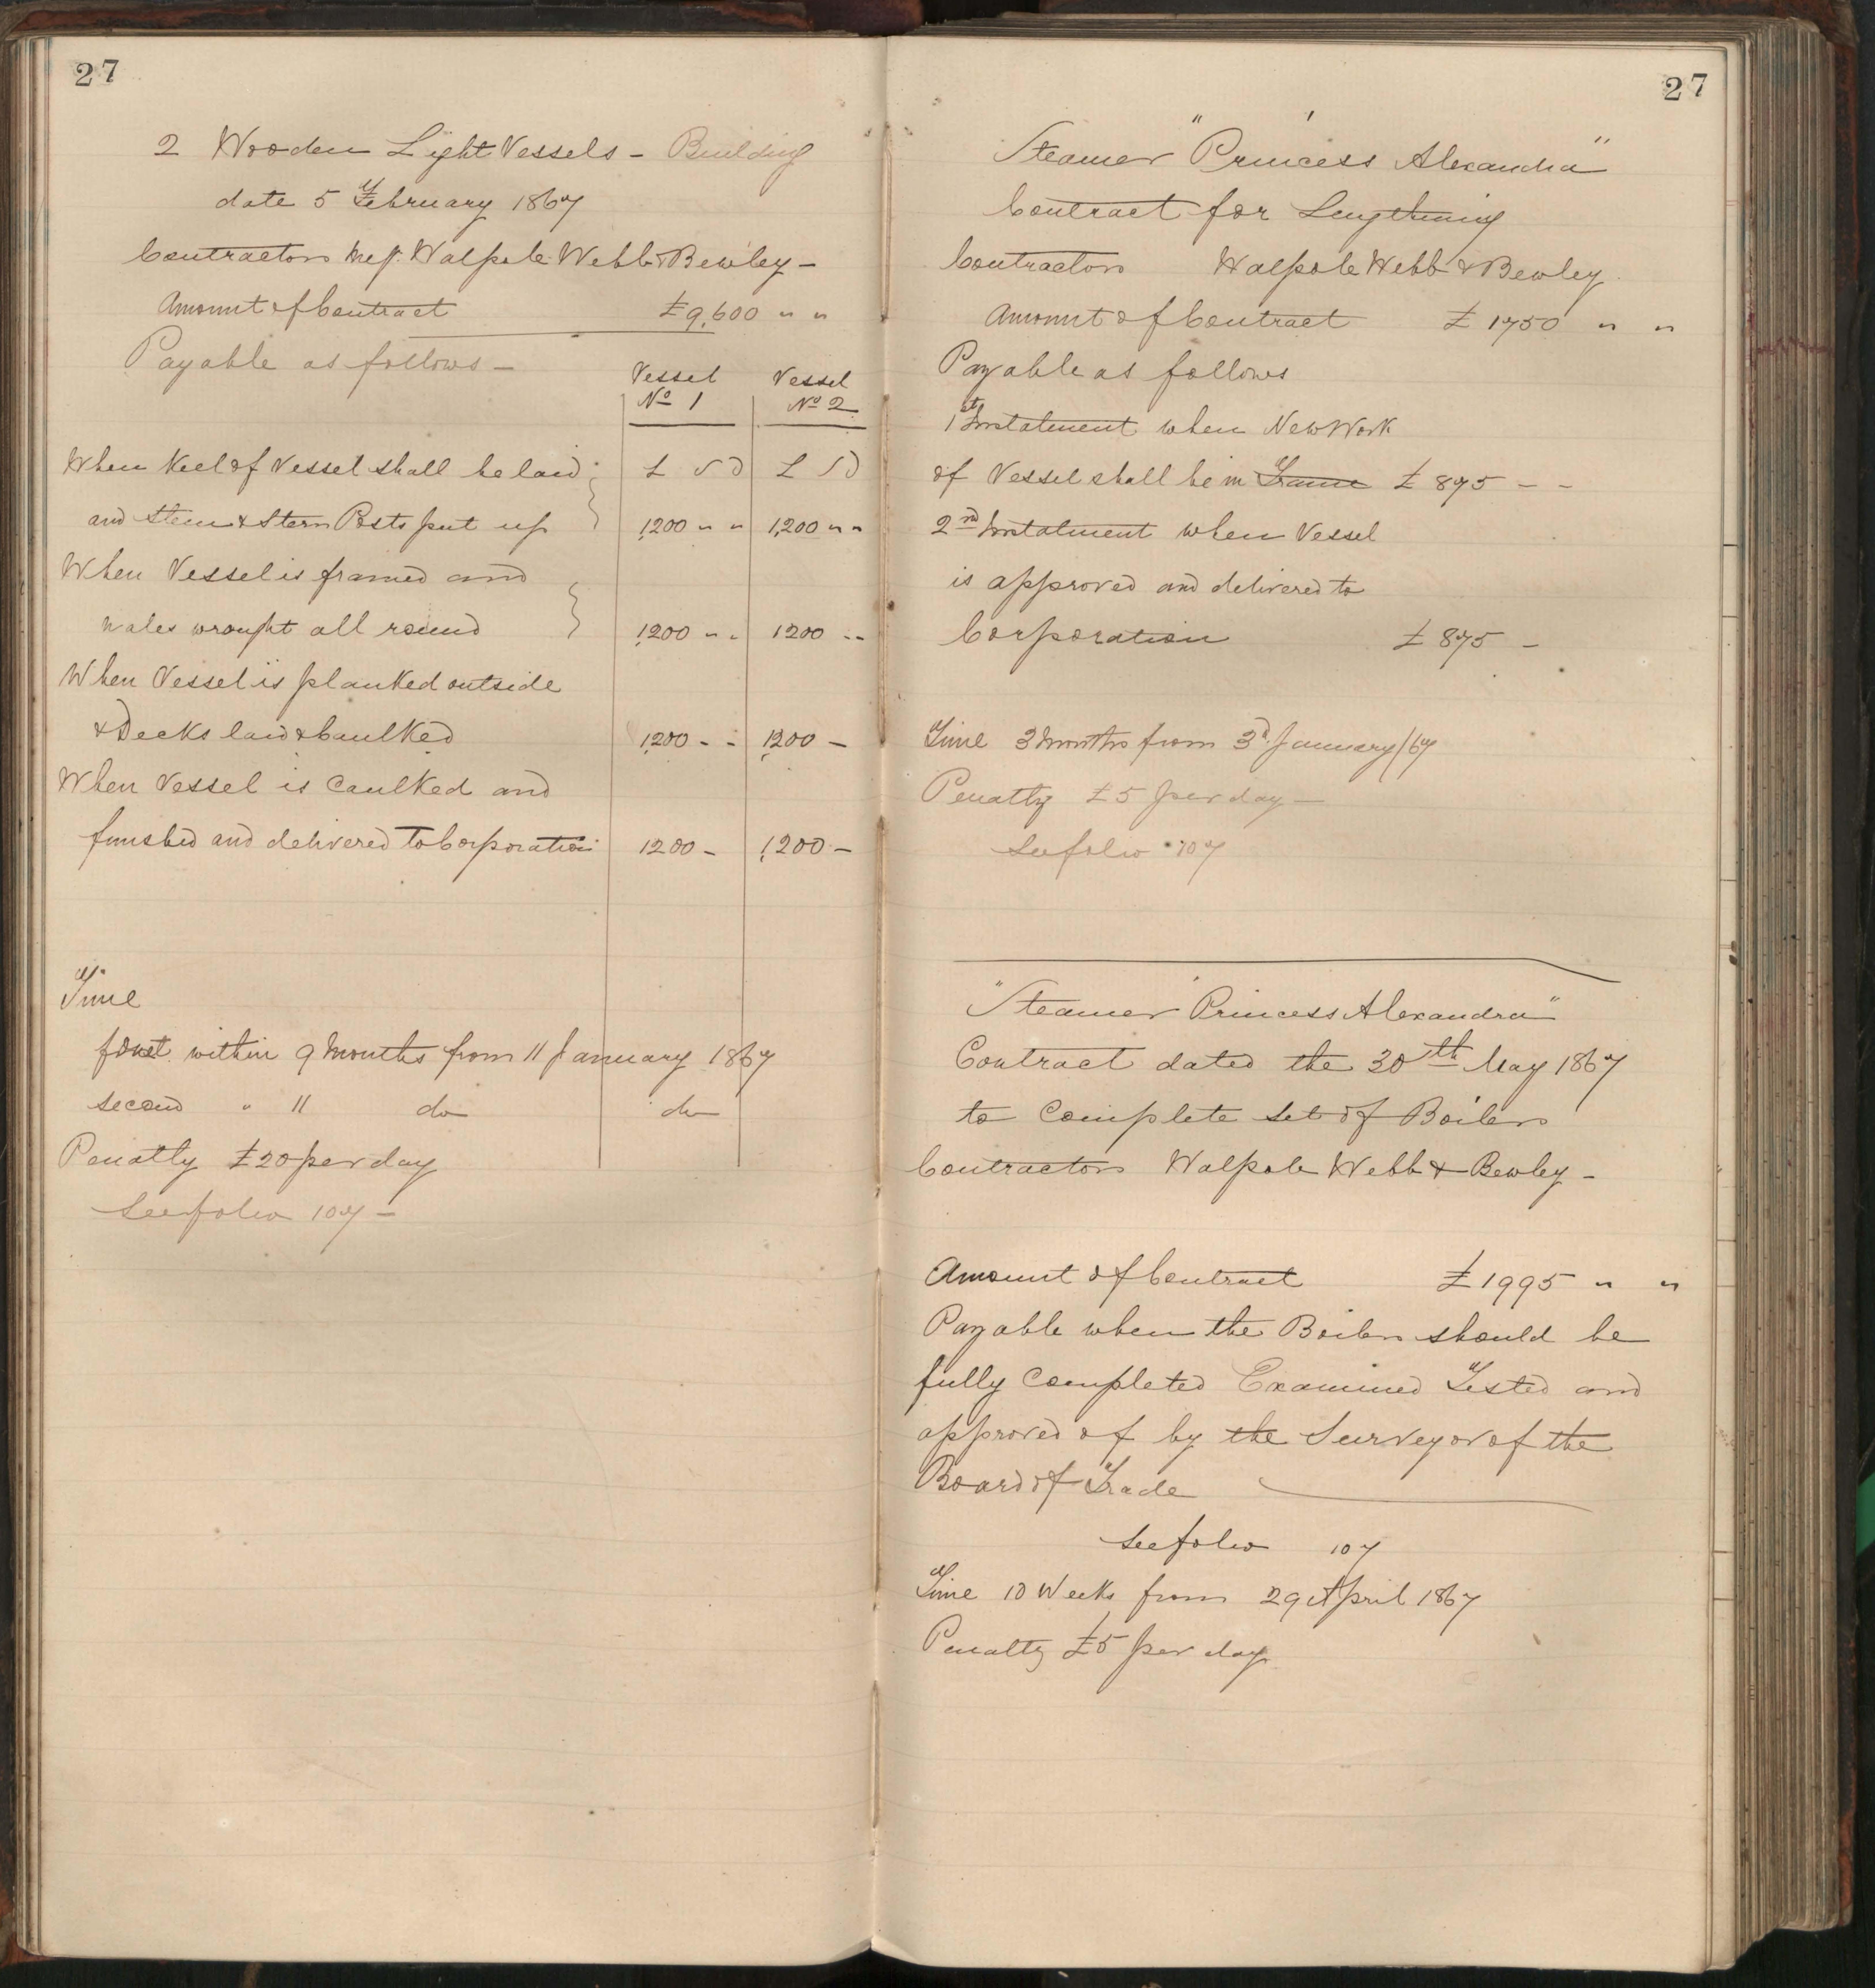 27
2 Wooden Light Vessels - Building
date 5 February 1867
Contractors Mess. Walpole Webb & Bewley -
Amount of Contract £9,600 " "
Payable as follows -
Vessel Vessel
No 1 No 2
When Keel of Vessel shall be laid £ s d £ s d
and Stem & Stern Posts put up 1,200 " " 1,200 " "
When Vessel is framed and
wales wrought all round 1,200 " " 1200 " "
When Vessel is planked outside
& Decks laid & Caulked 1,200 - - 1,200 -
When Vessel is Caulked and
finished and delivered to Corporation 1200 - 1,200 -
Time
first within 9 Months from 11 January 1867
second " 11 do do
Penalty £20 per day
See folio 107 -
27
Steamer "Princess Alexandra"
Contract for Lengthening
Contractors Walpole Webb & Bewley
Amount of Contract £1750 " "
Payable as follows
1st Instalment when New Work
of Vessel shall be in Frame £875 - -
2nd Instalment when Vessel
is approved and delivered to
Corporation £875 -
Time 3 Months from 3d. January/67
Penalty £5 per day -
See folio 107
"Steamer "Princess Alexandra"
Contract dated the 30th May 1867
to Complete set of Boilers
Contractors Walpole Webb & Bewley -
Amount of Contract £1995 " "
Payable when the Boilers should be
fully Completed Examined Tested and
approved of by the Surveyor of the
Board of Trade
See folio 107
Time 10 Weeks from 29 April 1867
Penalty £5 per day